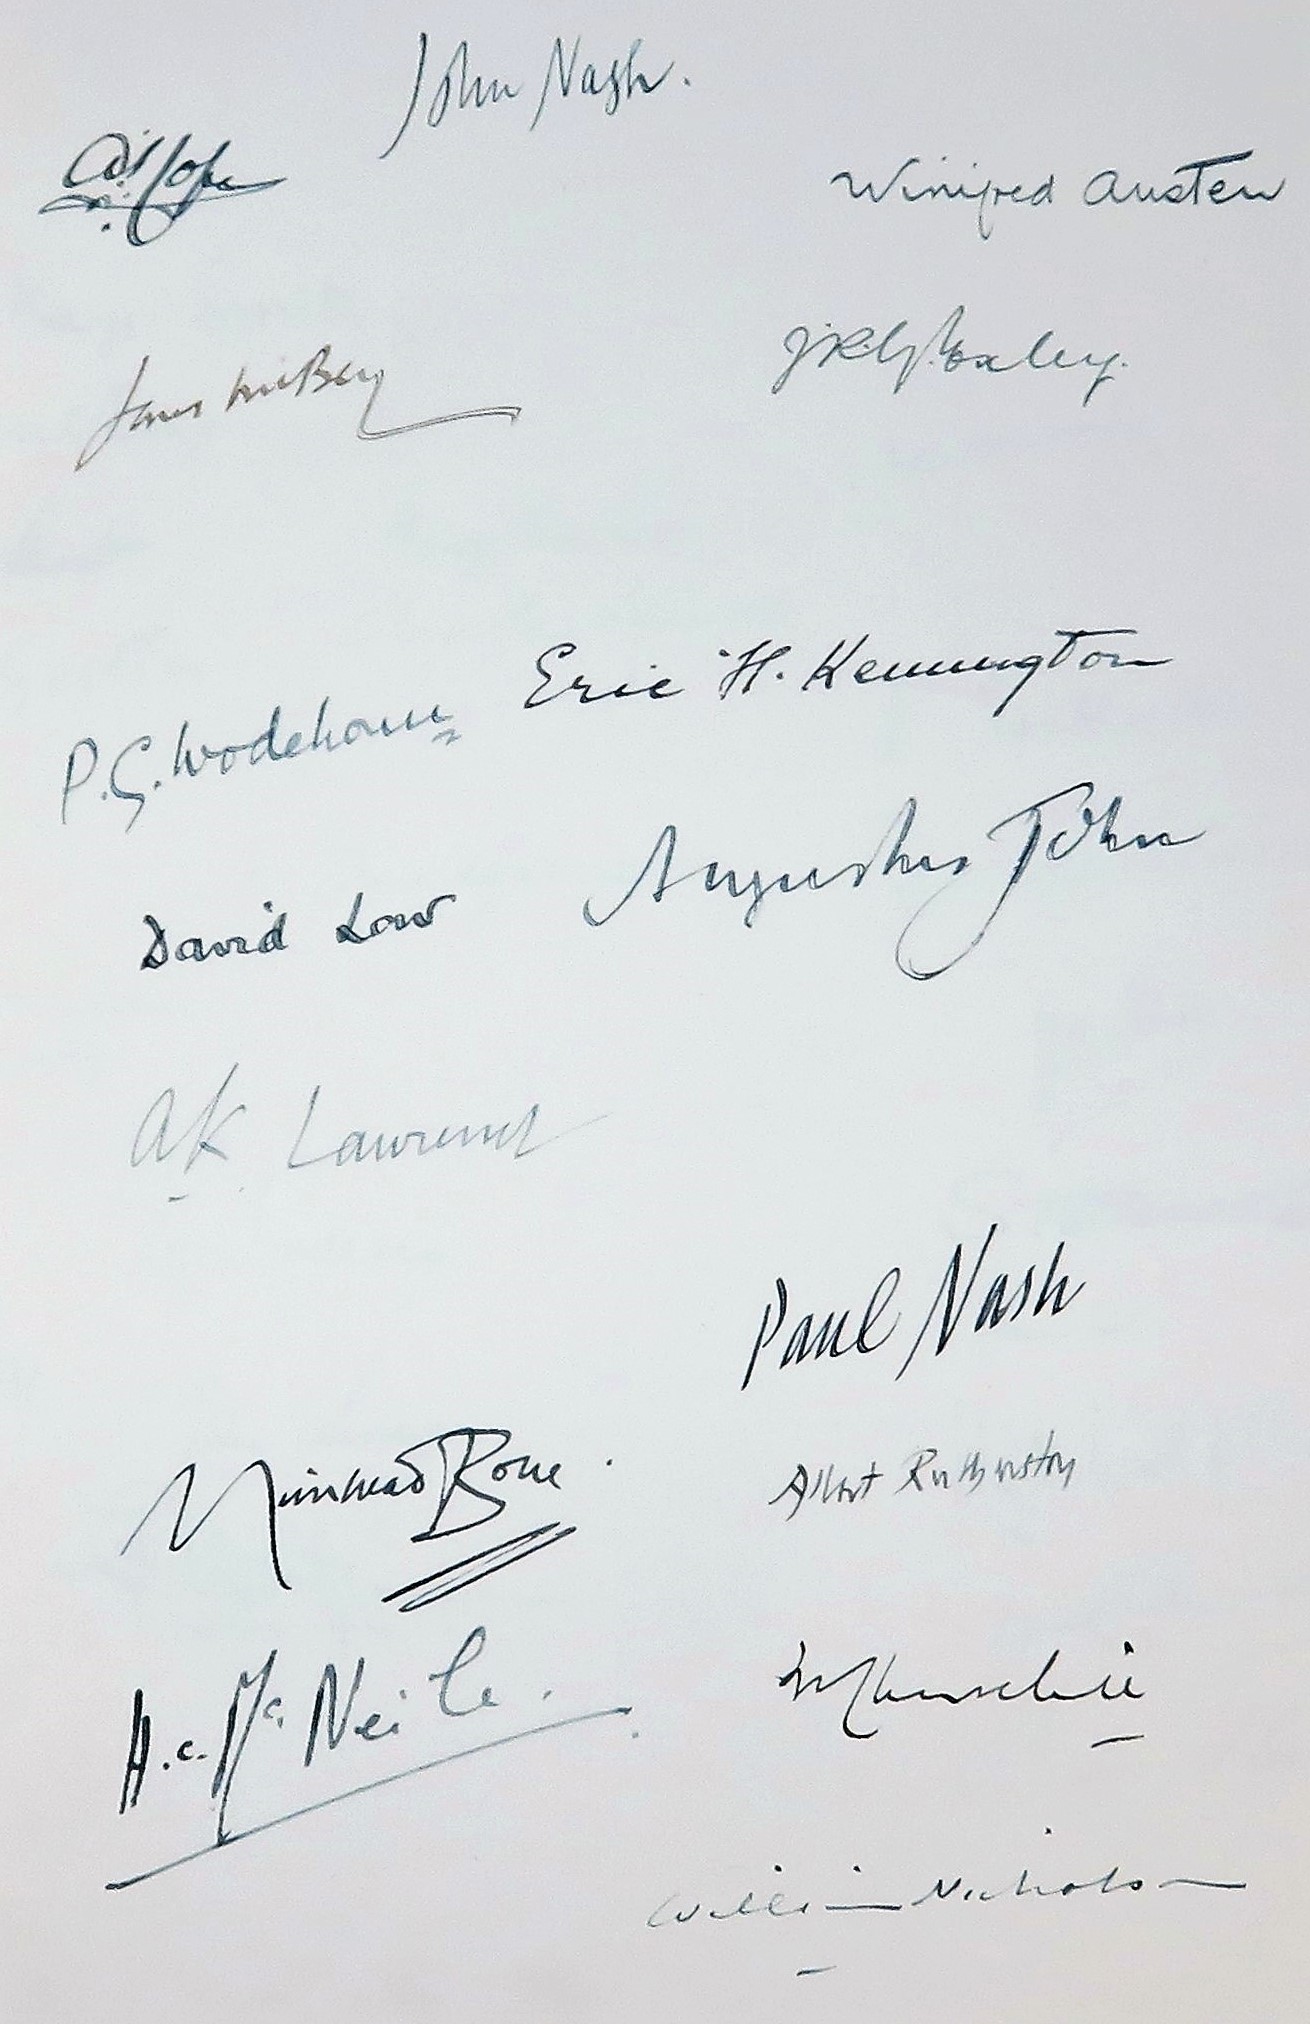 John Nash.
Winifred Austen
James McBey
J.R.G. Exley.
Eric H. Kennington
P.G. Wodehouse
Augustus John
David Low
A K Lawrence
Paul Nash
Muirhead Bone.
Albert Rutherston
H. C. McNeile.
William Nicholson